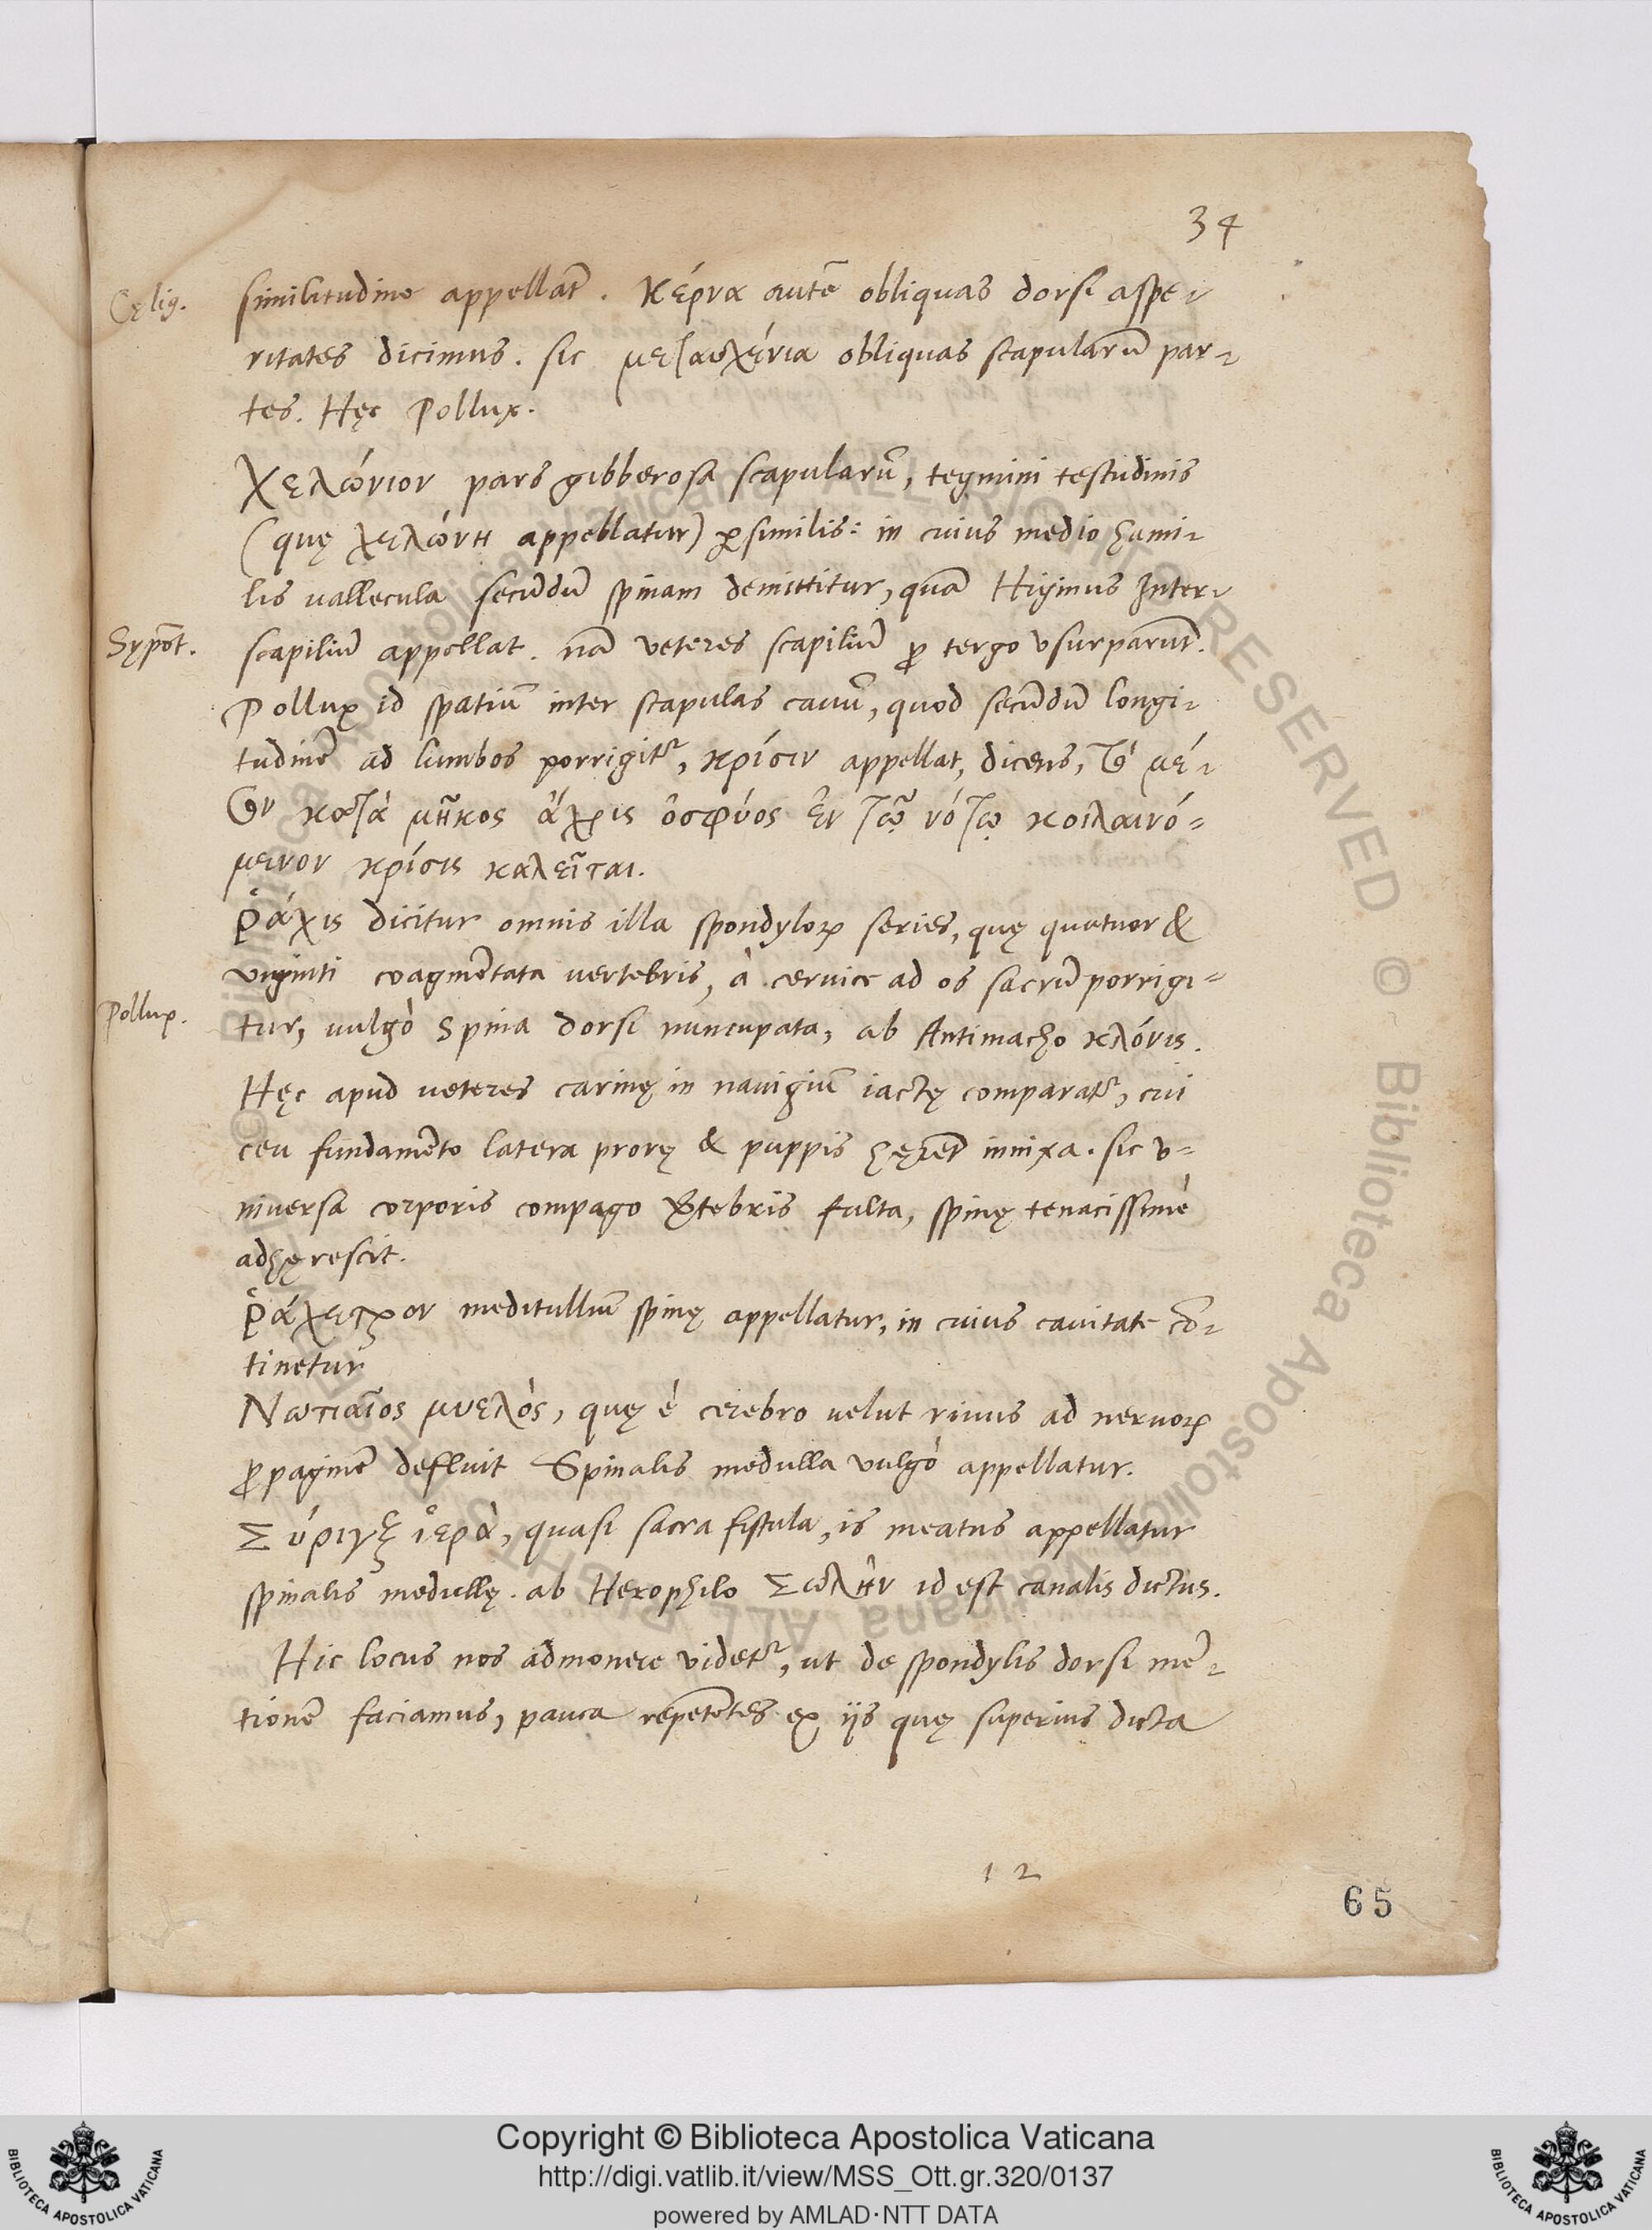 34
Cęlig.
similitudine appellāt. κέρνα autē obliquas dorsi aspe-
ritates dicimus. sic μεταυχένια obliquas scapularū par-
tes. Hęc Pollux.
Χελώνιον pars gibberosa scapularū, tegmini testudinis
(quę χελώνη appellatur) ꝑsimilis: in cuius medio humi-
lis vallecula secūdū spinam demittitur, quā Higinus Inter-
Sypōt.
scapiliū appellat. nā veteres scapiliū ꝓ tergo vsurparūt.
Pollux id spatiū inter scapulas cauū, quod secūdū longi-
tudinē ad lumbos porrigitᷣ, κρίσιν appellat, dicens, τὸ μέ-
τον κατὰ μῆκος ἄχρις ὀσφύος ἐν τῶ νότω κοιλαινό-
μενον κρίσις καλεῖται.
Ῥάχις dicitur omnis illa spondyloꝝ series, quę quatuor &
viginti coagmētata vertebris, à ceruice ad os sacrū porrigi-
Pollux.
tur, vulgò spina dorsi nuncupata, ab Antimacho κλόνις.
Hęc apud veteres carinę in nauigiū iactę comparatᷣ, cui
ceu fundamēto latera prorę & puppis hęrēt innixa. sic v-
niversa corporis compago v̄tebris fulta, spinę tenacissimè
adhęrescit.
Ῥάχετρον meditulliū spinę appellatur, in cuius cauitate cō-
tinetur
Νωτιαῖος μυελός, quę è cerebro velut riuus ad neruoꝝ
ꝓpaginē defluit Spinalis medulla vulgò appellatur.
Σύριγξ ἱερὰ, quasi sacra fistula, is meatus appellatur
spinalis medullę. ab Herophilo Σωλὴν id est canalis dictus.
Hic locus nos admonere videtᷣ, ut de spondylis dorsi mē-
tionē faciamus, pauca repetētes ex ijs quę superius dicta
12
65
Copyright © Biblioteca Apostolica Vaticana
http://digi.vatlib.it/view/MSS_Ott.gr.320/0137
powered by AMLAD·NTT DATA
BIBLIOTECA APOSTOLICA VATICANA
BIBLIOTECA APOSTOLICA VATICANA